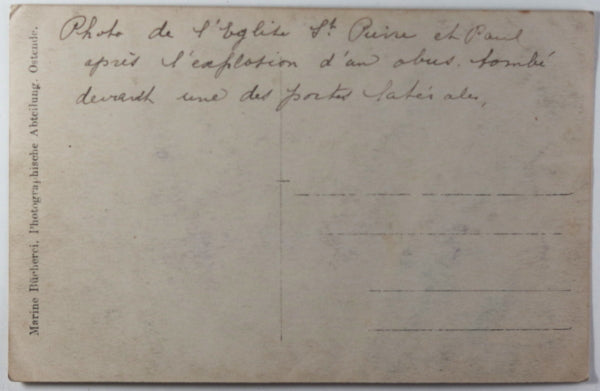 Photo de l'Eglise St Pierre et Paul
après l'explosion d'un obus tombé
devant une des portes latérales,
Marine Bücherei, Photographische Abteilung, Ostende.